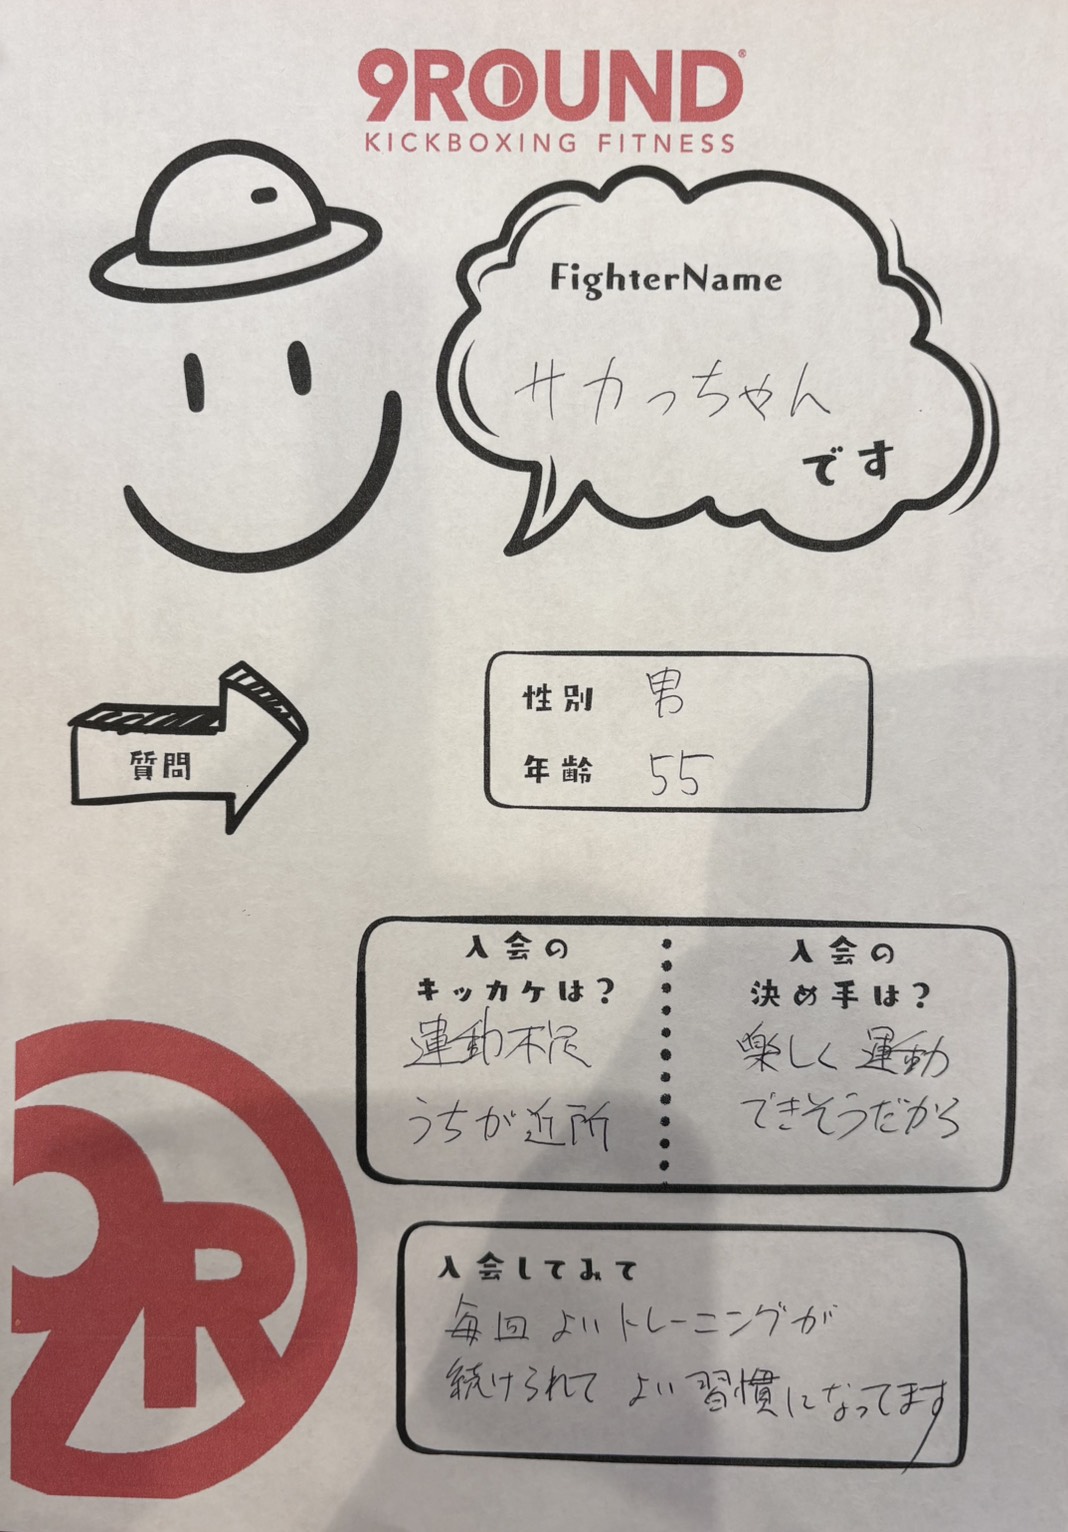 9ROUND
KICKBOXING FITNESS
FighterName
サカっちゃん
です
質問
性別 男
年齢 55
入会の
キッカケは?
運動不足
うちが近所
入会の
決め手は?
楽しく運動
できそうだから
9R
入会してみて
毎回よいトレーニングが
続けられてよい習慣になってます